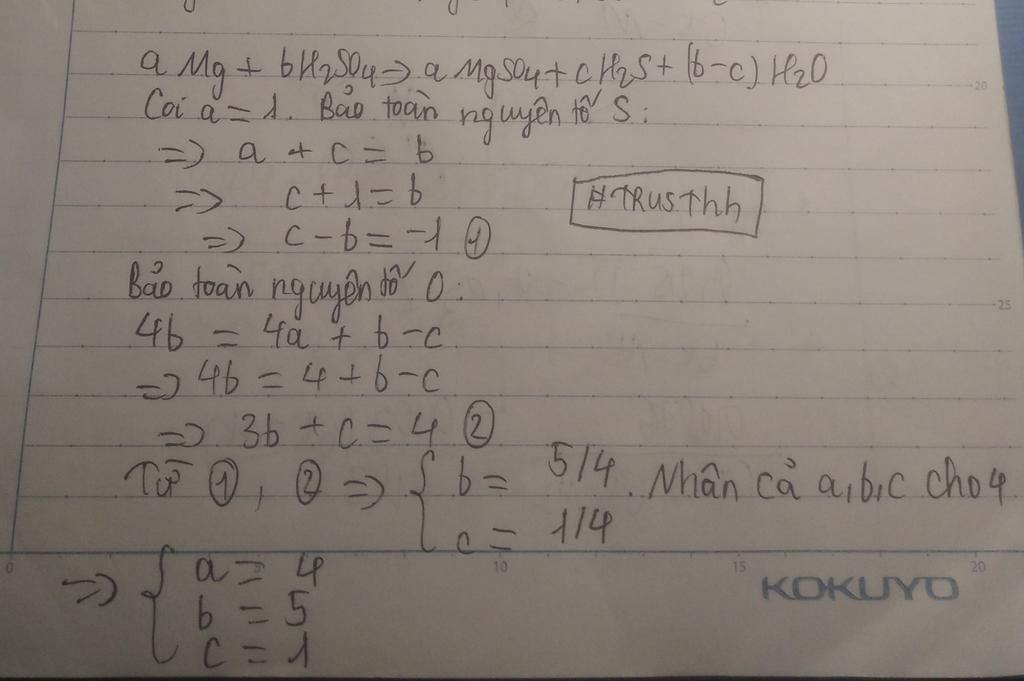 a Mg + bH₂SO₄ → a MgSO₄ + cH₂S + (b-c) H₂O
Coi a = 1. Bảo toàn nguyên tố S:
=> a + c = b
=> c + 1 = b
#TRUSThh
=> c - b = -1 ①
Bảo toàn nguyên tố O:
4b = 4a + b - c
=> 4b = 4 + b - c
=> 3b + c = 4 ②
Từ ①, ② => { b = 5/4. Nhân cả a,b,c cho 4
c = 1/4
=> { a = 4
b = 5
c = 1
KOKUYO
20
25
0
10
15
20